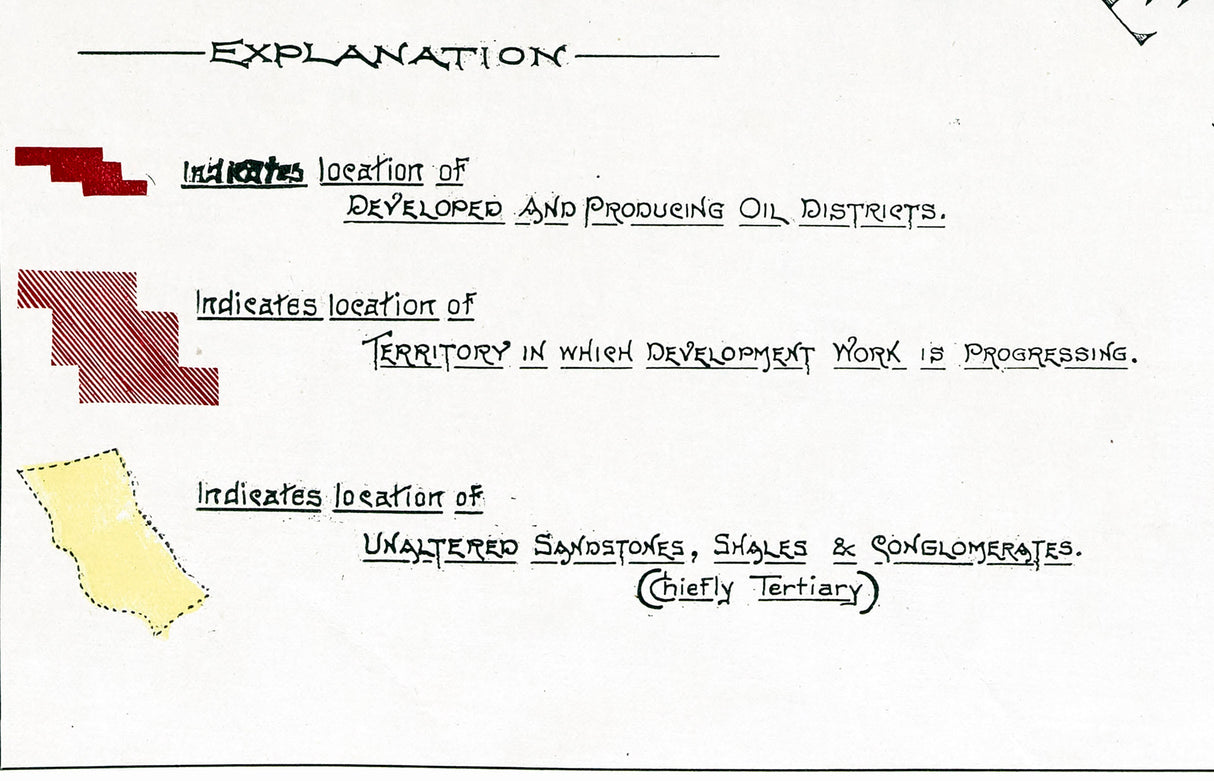 EXPLANATION
Indicates location of
DEVELOPED AND PRODUCING OIL DISTRICTS.
Indicates location of
TERRITORY IN WHICH DEVELOPMENT WORK IS PROGRESSING.
Indicates location of
UNALTERED SANDSTONES, SHALES & CONGLOMERATES.
(Chiefly Tertiary)